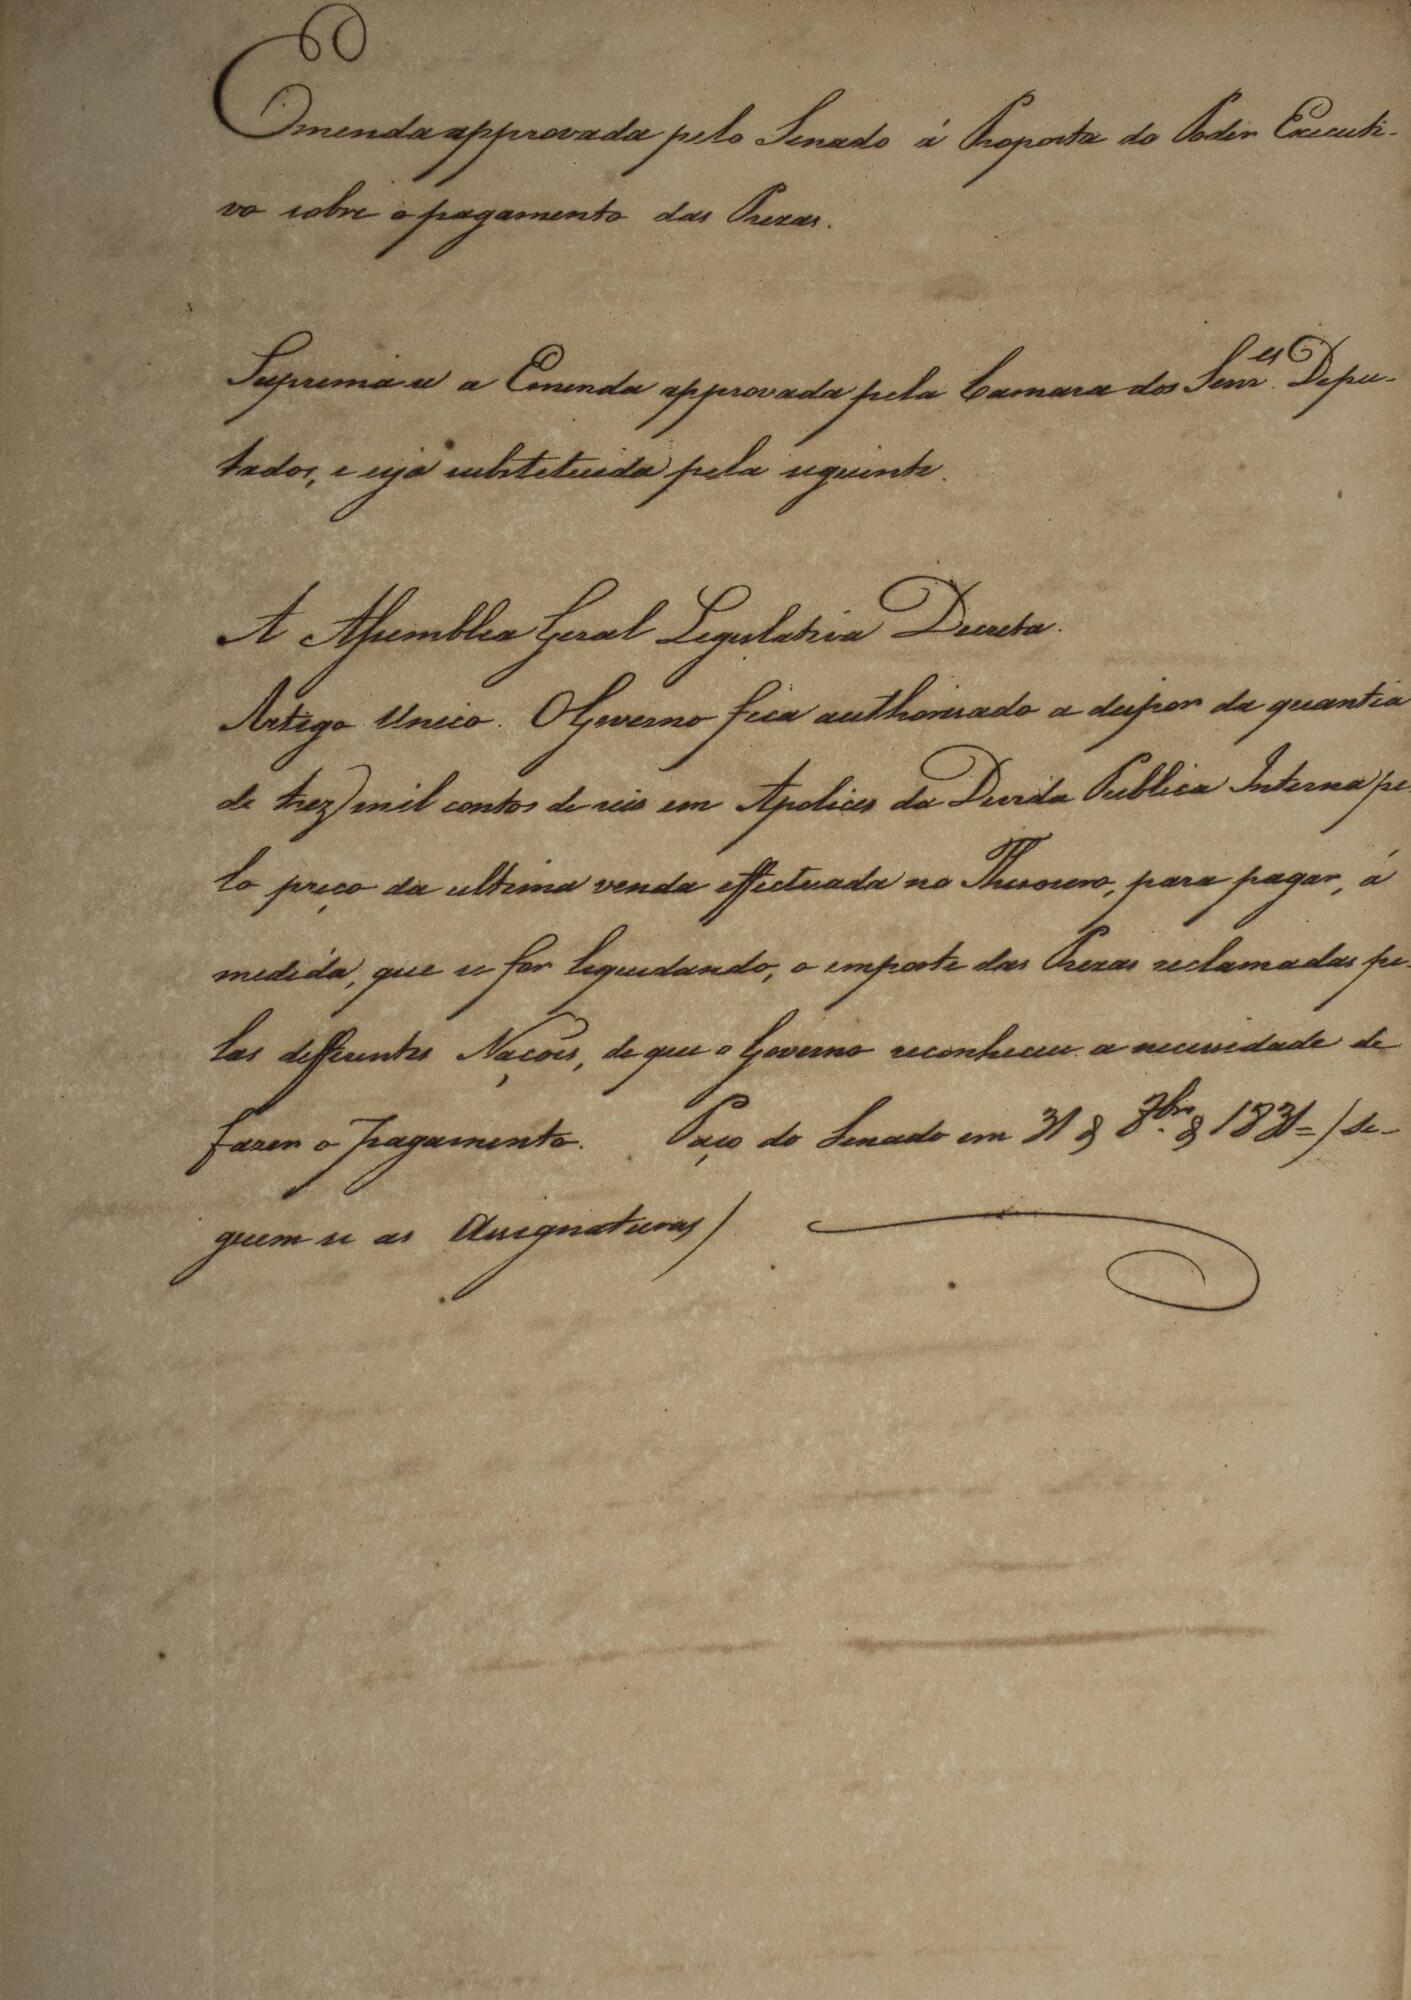 Emenda approvada pelo Senado á Proposta do Poder Executi-
vo sobre o pagamento das Prezas.
Suprima se a Emenda approvada pela Camara dos Senr.es Depu-
tados, e seja substituida pela seguinte.
A Assemblea Geral Legislativa Decreta.
Artigo Unico. O Governo fica authorisado a dispor da quantia
de trez mil contos de reis em Apolices da Divida Publica Interna pe-
lo preço da ultima venda effectuada no Thesouro, para pagar, á
medida, que se for liquidando, o importe das Prezas reclamadas pe-
las differentes Nações, de que o Governo reconheceu a necessidade de
fazer o pagamento. Paço do Senado em 31 de 8br.º de 1831 = / Se-
guem se as Assignaturas /